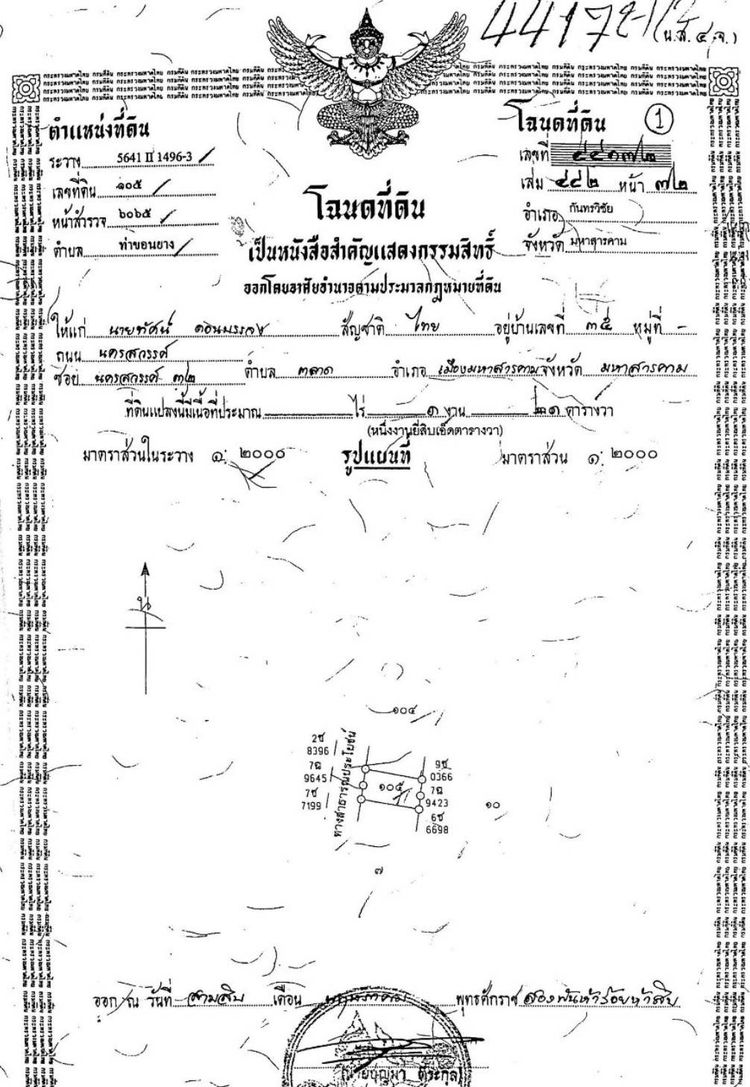 44172
(น.ส.๔ จ.)
ตำแหน่งที่ดิน
ระวาง 5641 II 1496-3
เลขที่ดิน ๑๐๕
หน้าสำรวจ ๖๐๖๕
ตำบล ท่าขอนยาง
โฉนดที่ดิน
เป็นหนังสือสำคัญแสดงกรรมสิทธิ์
ออกโดยอาศัยอำนาจตามประมวลกฎหมายที่ดิน
โฉนดที่ดิน ①
เลขที่ ๔๔๑๗๒
เล่ม ๔๔๒ หน้า ๗๒
อำเภอ กันทรวิชัย
จังหวัด มหาสารคาม
ให้แก่ นายทัศน์ สัญชาติ ไทย อยู่บ้านเลขที่ ๓๕ หมู่ที่ -
ถนน นครสวรรค์
ซอย นครสวรรค์ ๓๒ ตำบล ตลาด อำเภอ เมืองมหาสารคาม จังหวัด มหาสารคาม
ที่ดินแปลงนี้มีเนื้อที่ประมาณ ไร่ ๑ งาน ๒๑ ตารางวา
(หนึ่งงานยี่สิบเอ็ดตารางวา)
มาตราส่วนในระวาง ๑: ๒๐๐๐ รูปแผนที่ มาตราส่วน ๑: ๒๐๐๐
น
๑๐๔
2ซ
8396
7ฌ
9645
7ซ
7199
ทางสาธารณประโยชน์
๑๐๕
9ซ
0366
7ฌ
9423
6ซ
6698
๑๐
๗
ออก ณ วันที่ สามสิบ เดือน พฤษภาคม พุทธศักราช สองพันห้าร้อยห้าสิบ